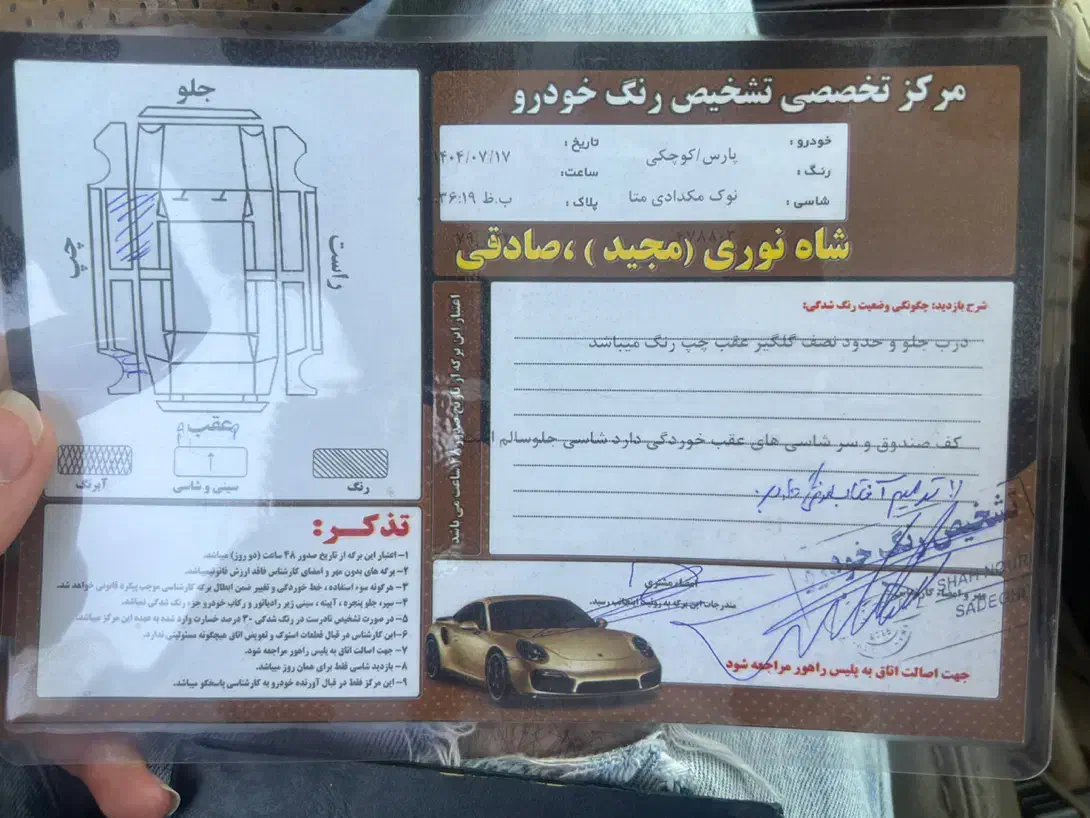 مرکز تخصصی تشخیص رنگ خودرو
خودرو :
پارس/کوچکی
تاریخ :
۱۴۰۴/۰۷/۱۷
رنگ :
نوک مکدادی متا
ساعت:
ب.ظ ۳۶:۱۹
شاسی :
پلاک :
شاه نوری (مجید ) ،صادقی
جلو
چپ
راست
عقب
آبرنگ
سینی و شاسی
رنگ
اعتبار این برگه از تاریخ صدور ۴۸ ساعت می باشد
شرح بازدید: چگونگی وضعیت رنگ شدگی:
درب جلو و حدود نصف گلگیر عقب چپ رنگ میباشد
کف صندوق و سر شاسی های عقب خوردگی دارد شاسی جلوسالم
تذکـر:
۱- اعتبار این برگه از تاریخ صدور ۴۸ ساعت (دو روز) میباشد.
۲- برگه های بدون مهر و امضای کارشناس فاقد ارزش قانونیمیباشد.
۳- هرگونه سوء استفاده ، خط خوردگی و تغییر ضمن ابطال برگه کارشناسی موجب پیگرد قانونی خواهد شد.
۴- سپر، جلو پنجره ، آیینه ، سینی زیر رادیاتور و رکاب خودرو جزء رنگ شدگی نمیباشد.
۵- در صورت تشخیص نادرست در رنگ شدگی ۳۰ درصد خسارت وارد شده به عهده این مرکز میباشد.
۶- این کارشناس در قبال قطعات استوک و تعویض اتاق هیچگونه مسئولیتی ندارد.
۷- جهت اصالت اتاق به پلیس راهور مراجعه شود.
۸- بازدید شاسی فقط برای همان روز میباشد.
۹- این مرکز فقط در قبال آورنده خودرو به کارشناسی پاسخگو میباشد.
امضاء مشتری
مندرجات این برگه به رویت اینجانب رسید.
مهر و امضاء کارشناس
تشخیص رنگ خودرو
SHAH NOURI
SADEGHI
جهت اصالت اتاق به پلیس راهور مراجعه شود